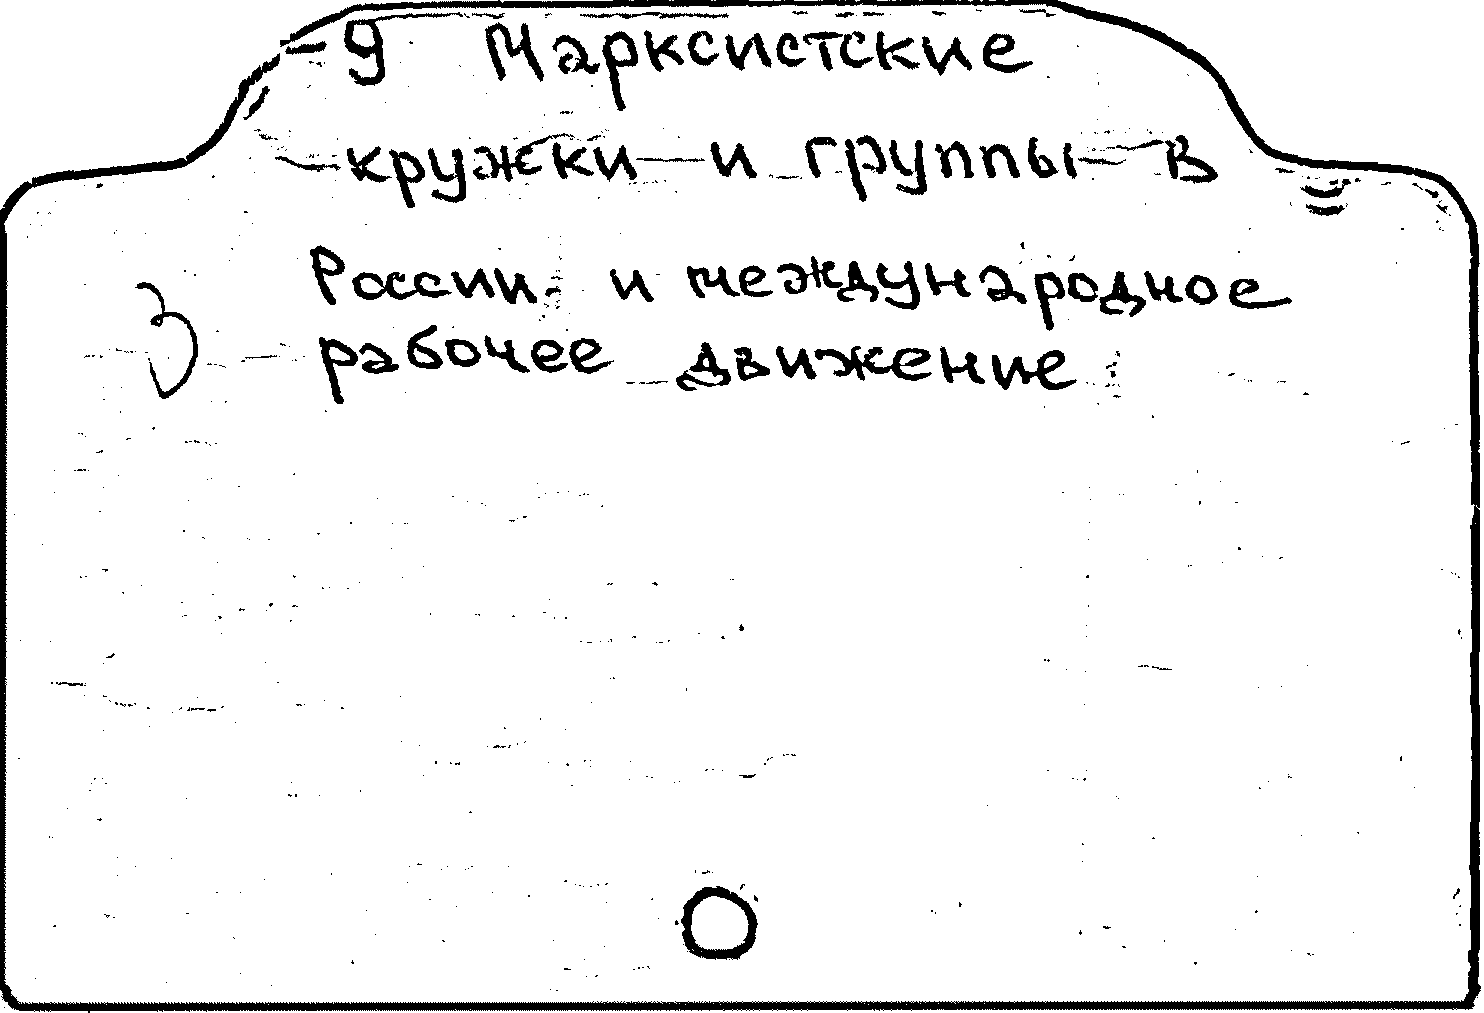 -9 Марксистские
кружки и группы в
России и международное
3 рабочее движение